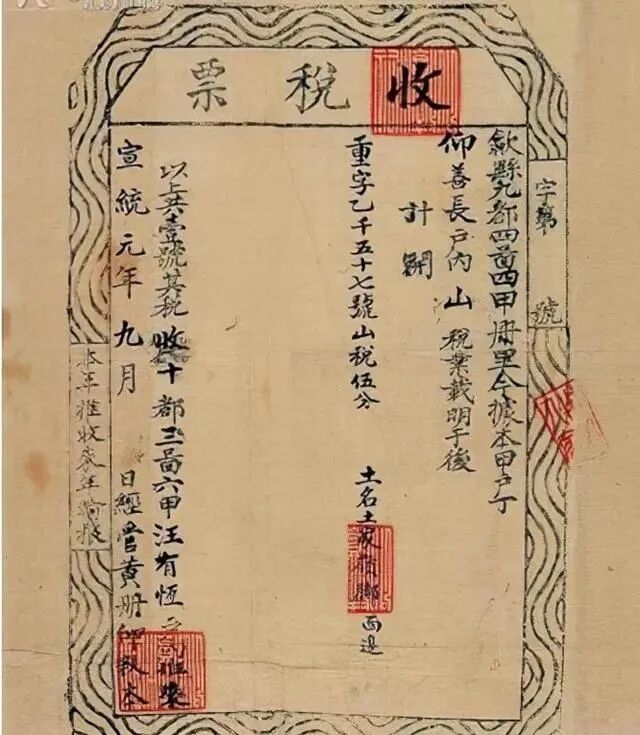 收稅票
字第 號
歙縣九都四啚四甲册里今據本甲戶丁
仰善長戶內山稅業載明于後
計開
重字乙千五十七號山稅伍分 土名土 西邊
以上共壹號其稅收十都三啚六甲汪有恆
宣統元年九月 日經管黃册
本年推收